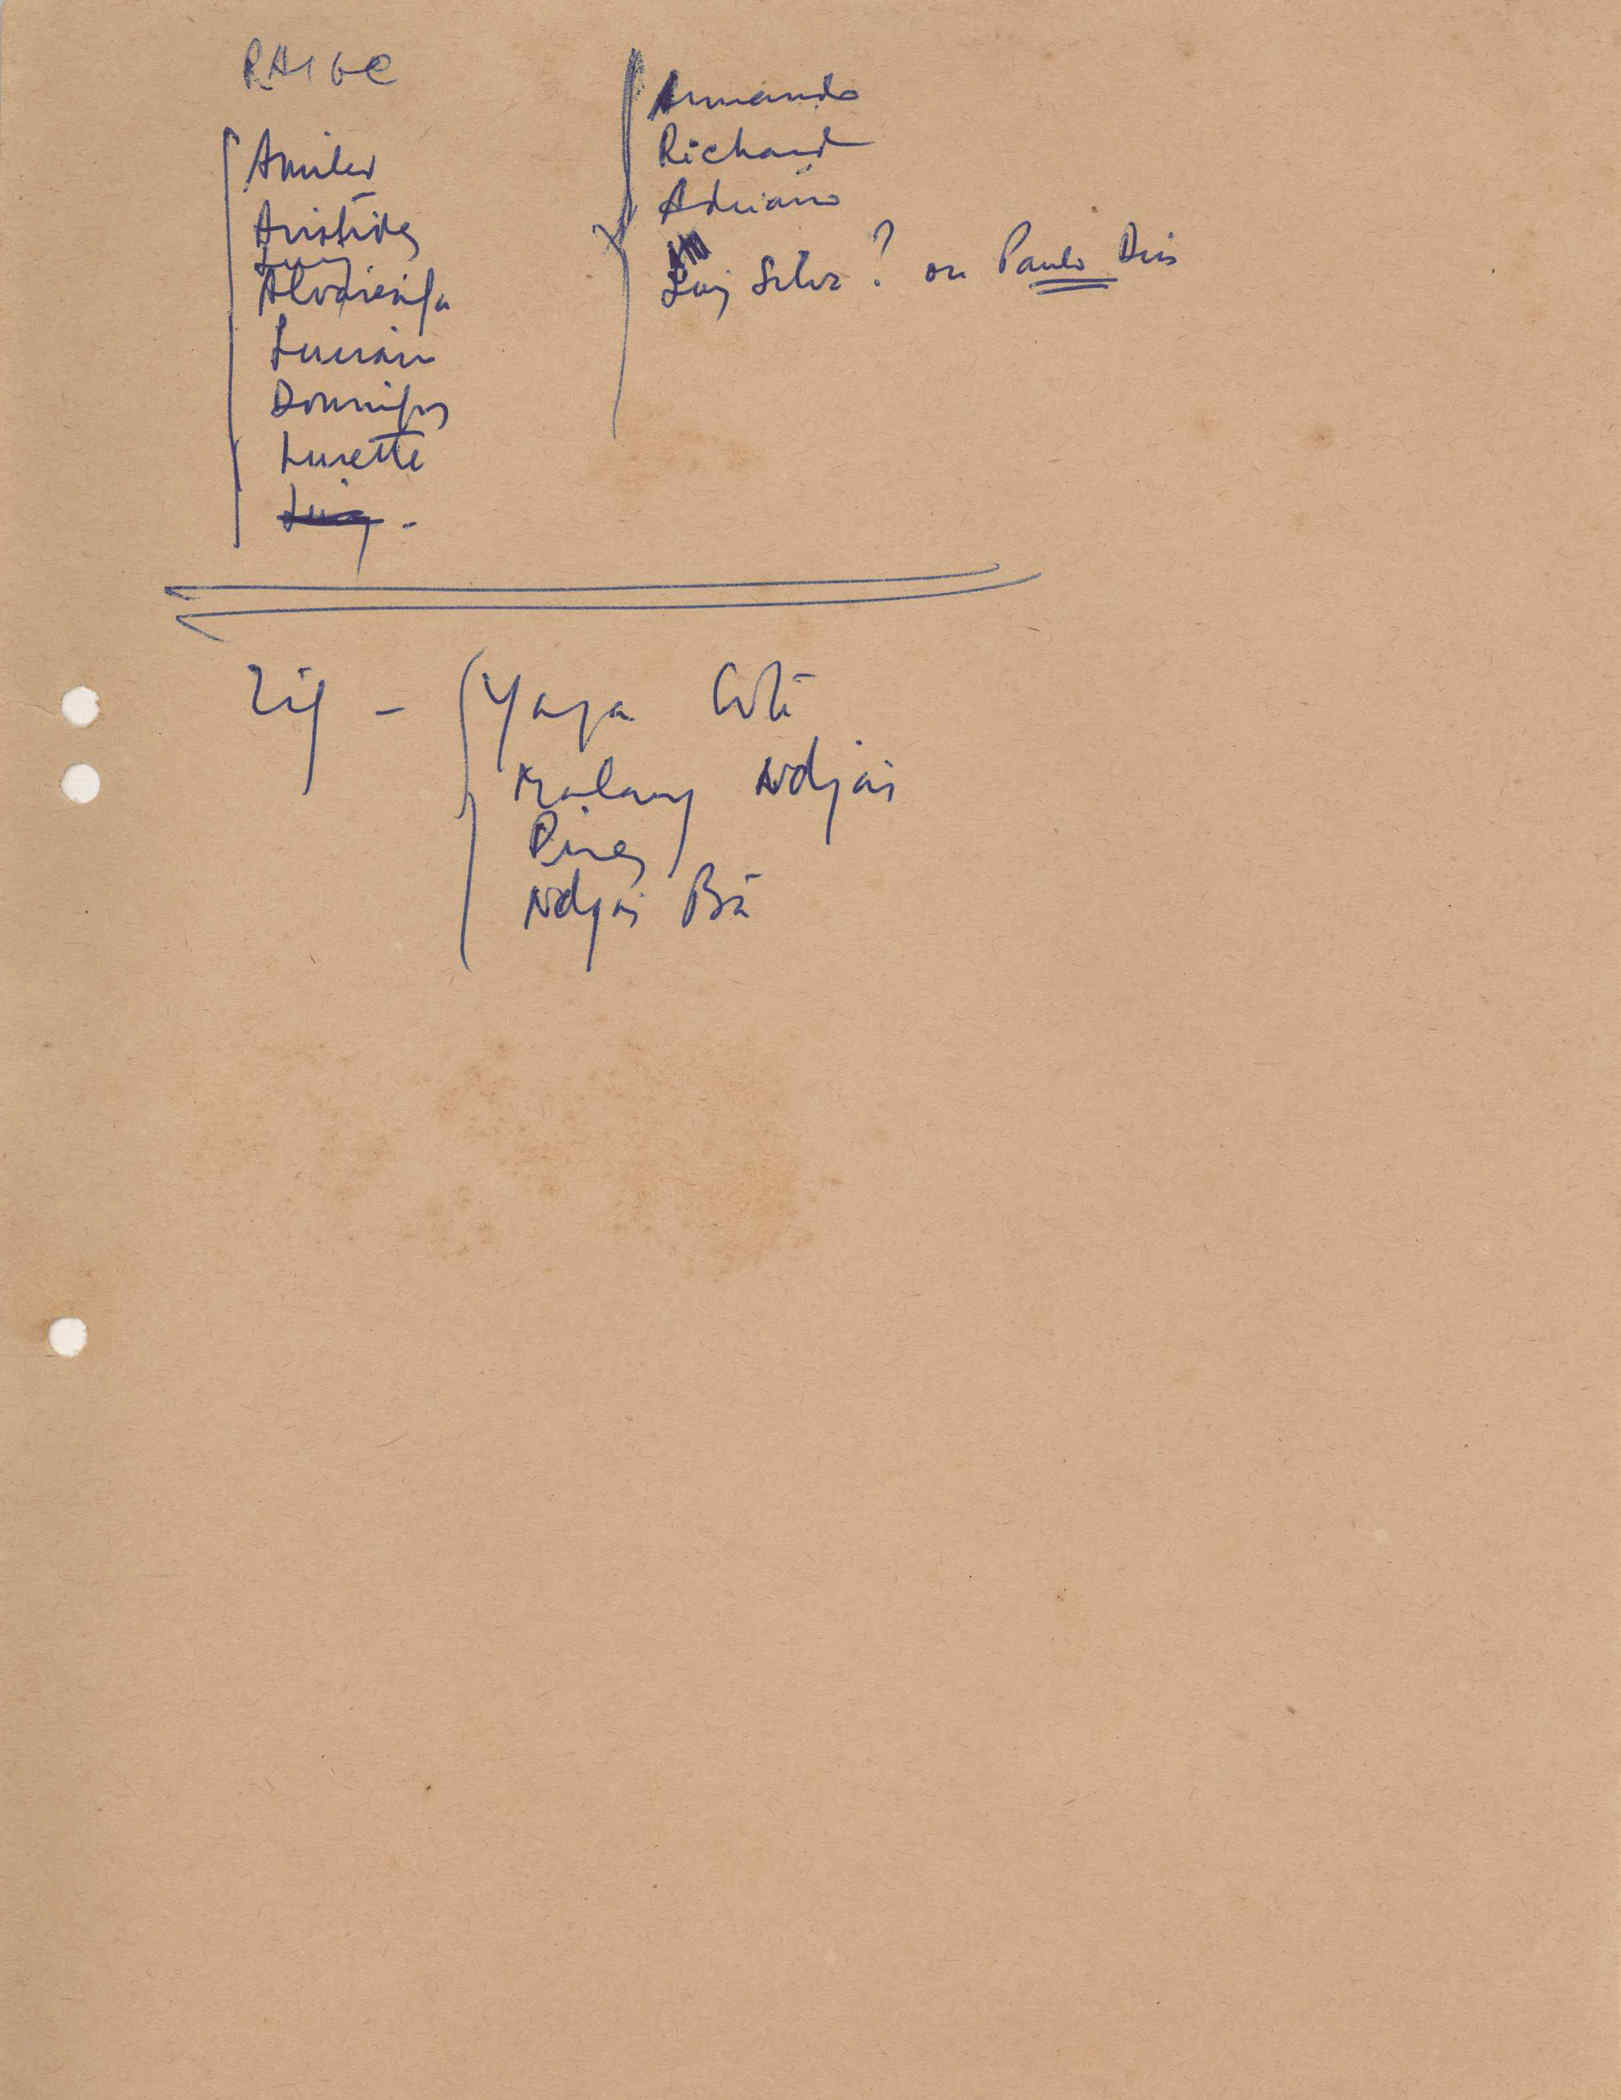 PAIGC
Amilcar
Aristides
Luiz
Alvarenga
Lucien
Domingos
Lucette
Luiz -
Armando
Richard
Adriano
Luiz Silva ? ou Paulo Dias
Zig - Yaya Coté
Malang Ndjai
Pires
Ndjai Bá